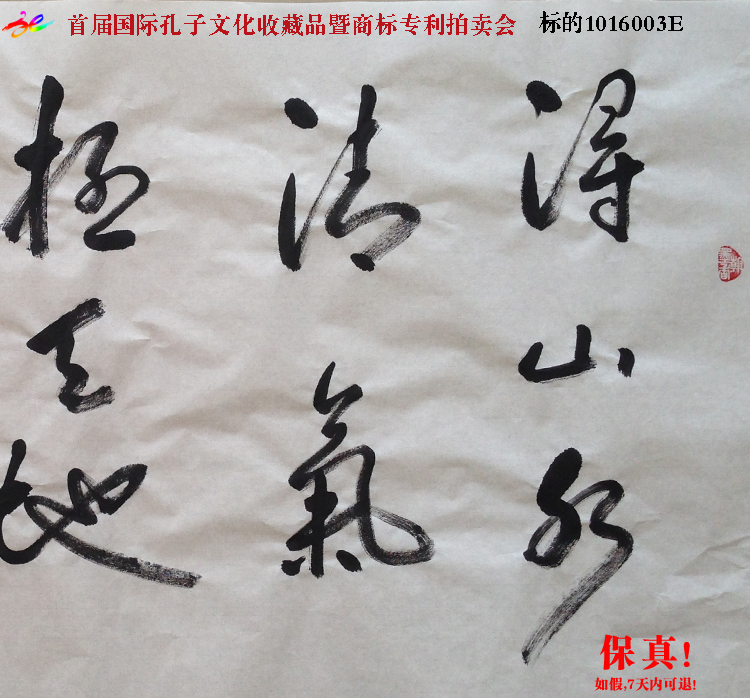 首届国际孔子文化收藏品暨商标专利拍卖会 标的1016003E
得山水
清氣
極天地
保真!
如假,7天内可退!